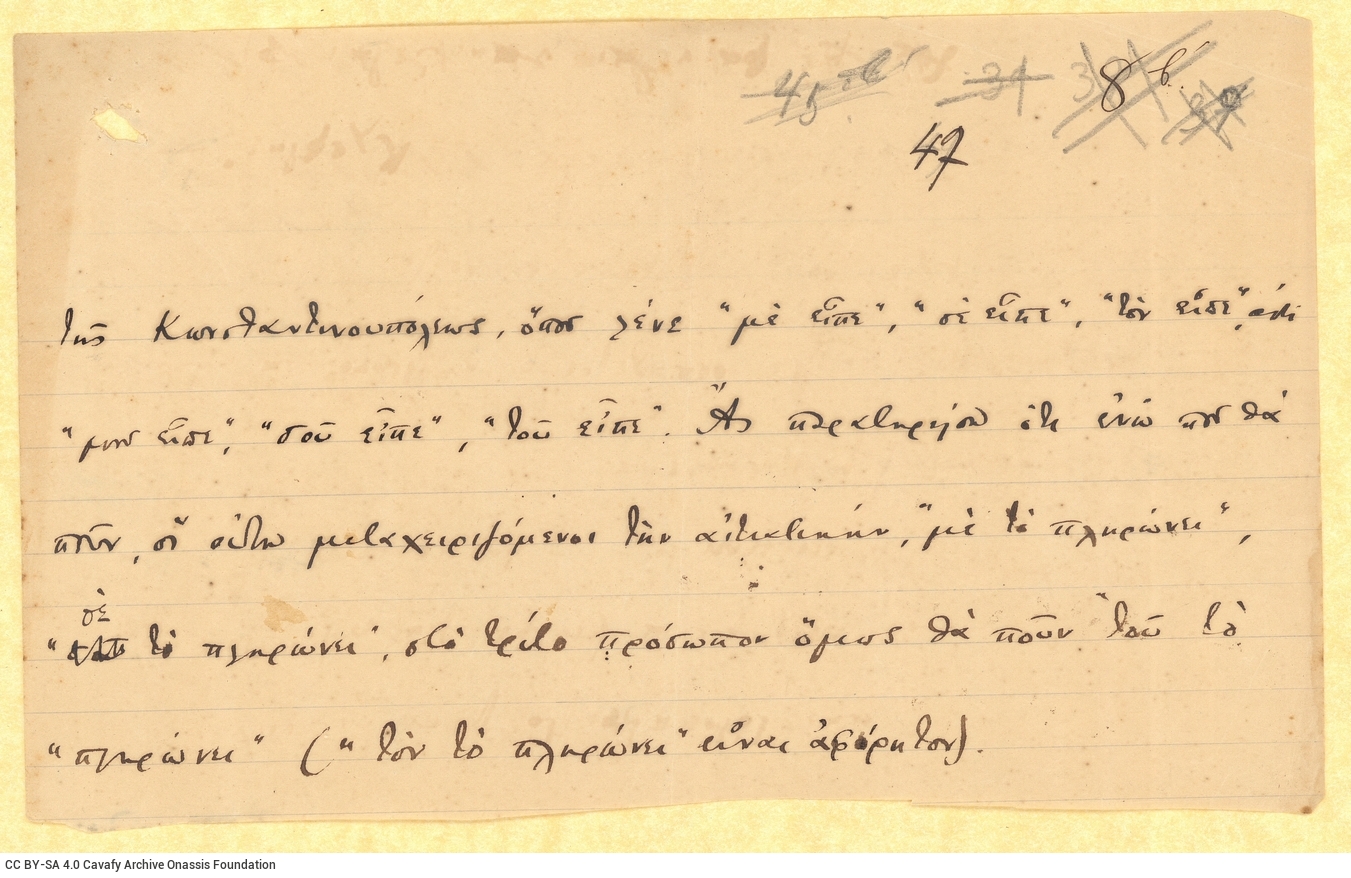 45 31 38 8 β΄. 39
47
τῆς Κωνσταντινουπόλεως, ὅπου λένε "μὲ εἶπε", "σὲ εἶπε", "τὸν εἶπε", ἀντὶ
"μου εἶπε", "σοῦ εἶπε", "τοῦ εἶπε". Ἄς παρατηρηθῇ ὅτι ἐνῷ ποῦ θὰ
ποῦν, οἱ οὕτω μεταχειριζόμενοι τὴν αἰτιατικήν, "μὲ τὸ πληρώνει",
σὲ
" τὸ πληρώνει", στὸ τρίτο πρόσωπον ὅμως θὰ ποῦν "τοῦ τὸ
"πληρώνει" ("τὸν τὸ πληρώνει" εἶναι ἀφόρητον).
CC BY-SA 4.0 Cavafy Archive Onassis Foundation